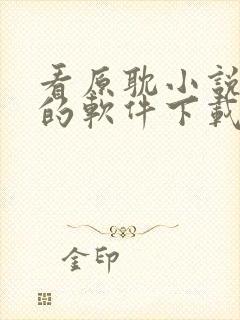 看原耽小說
的軟件下載
金印